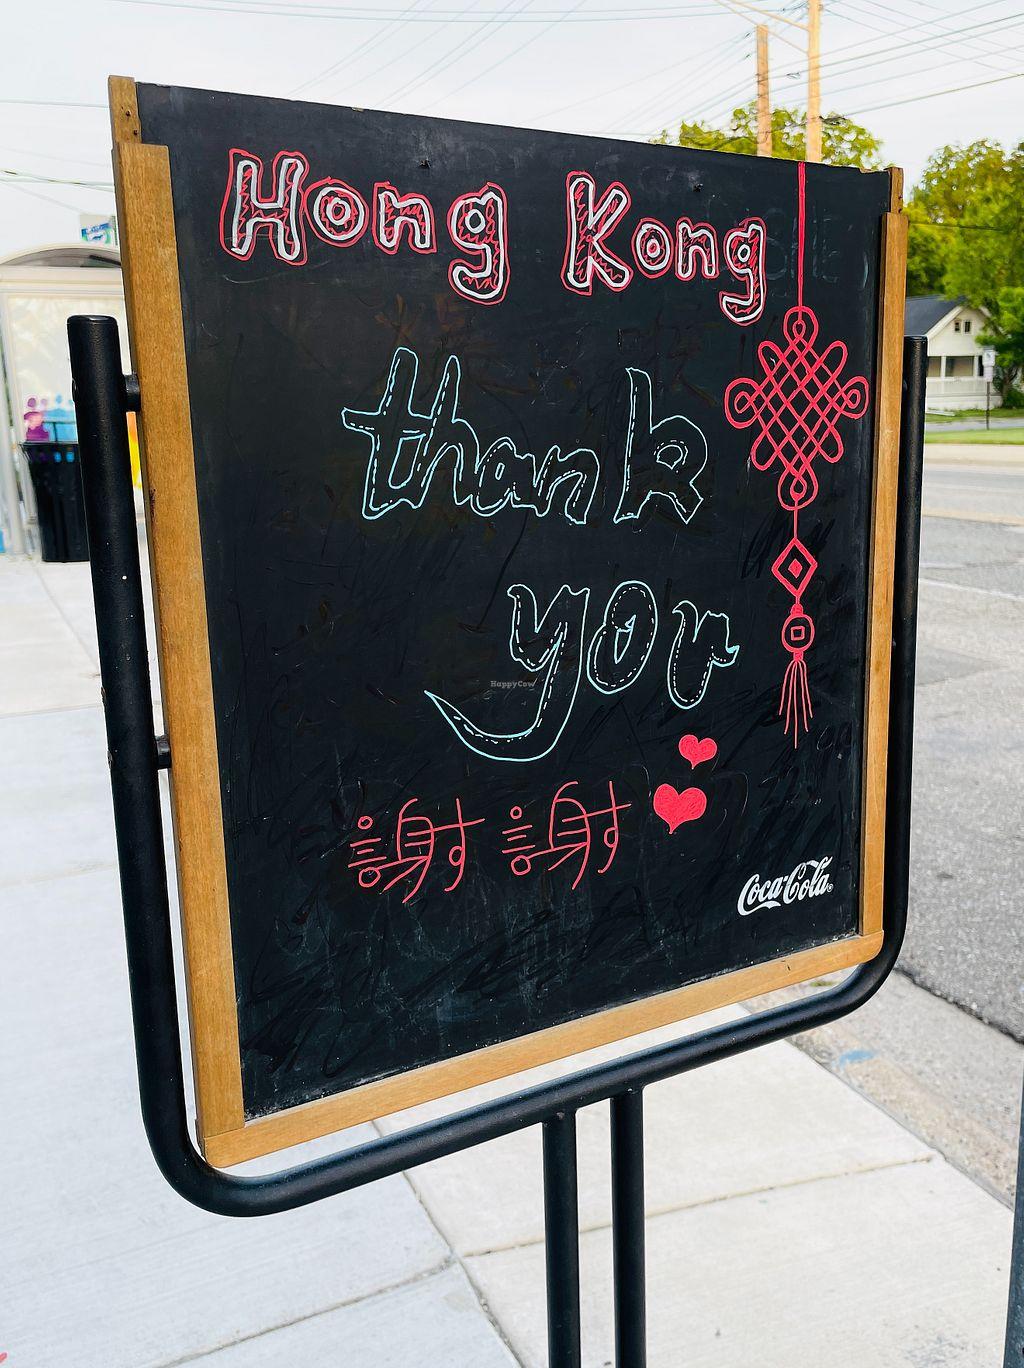 Hong Kong
thank
you
謝 謝
Coca-Cola
HappyCow